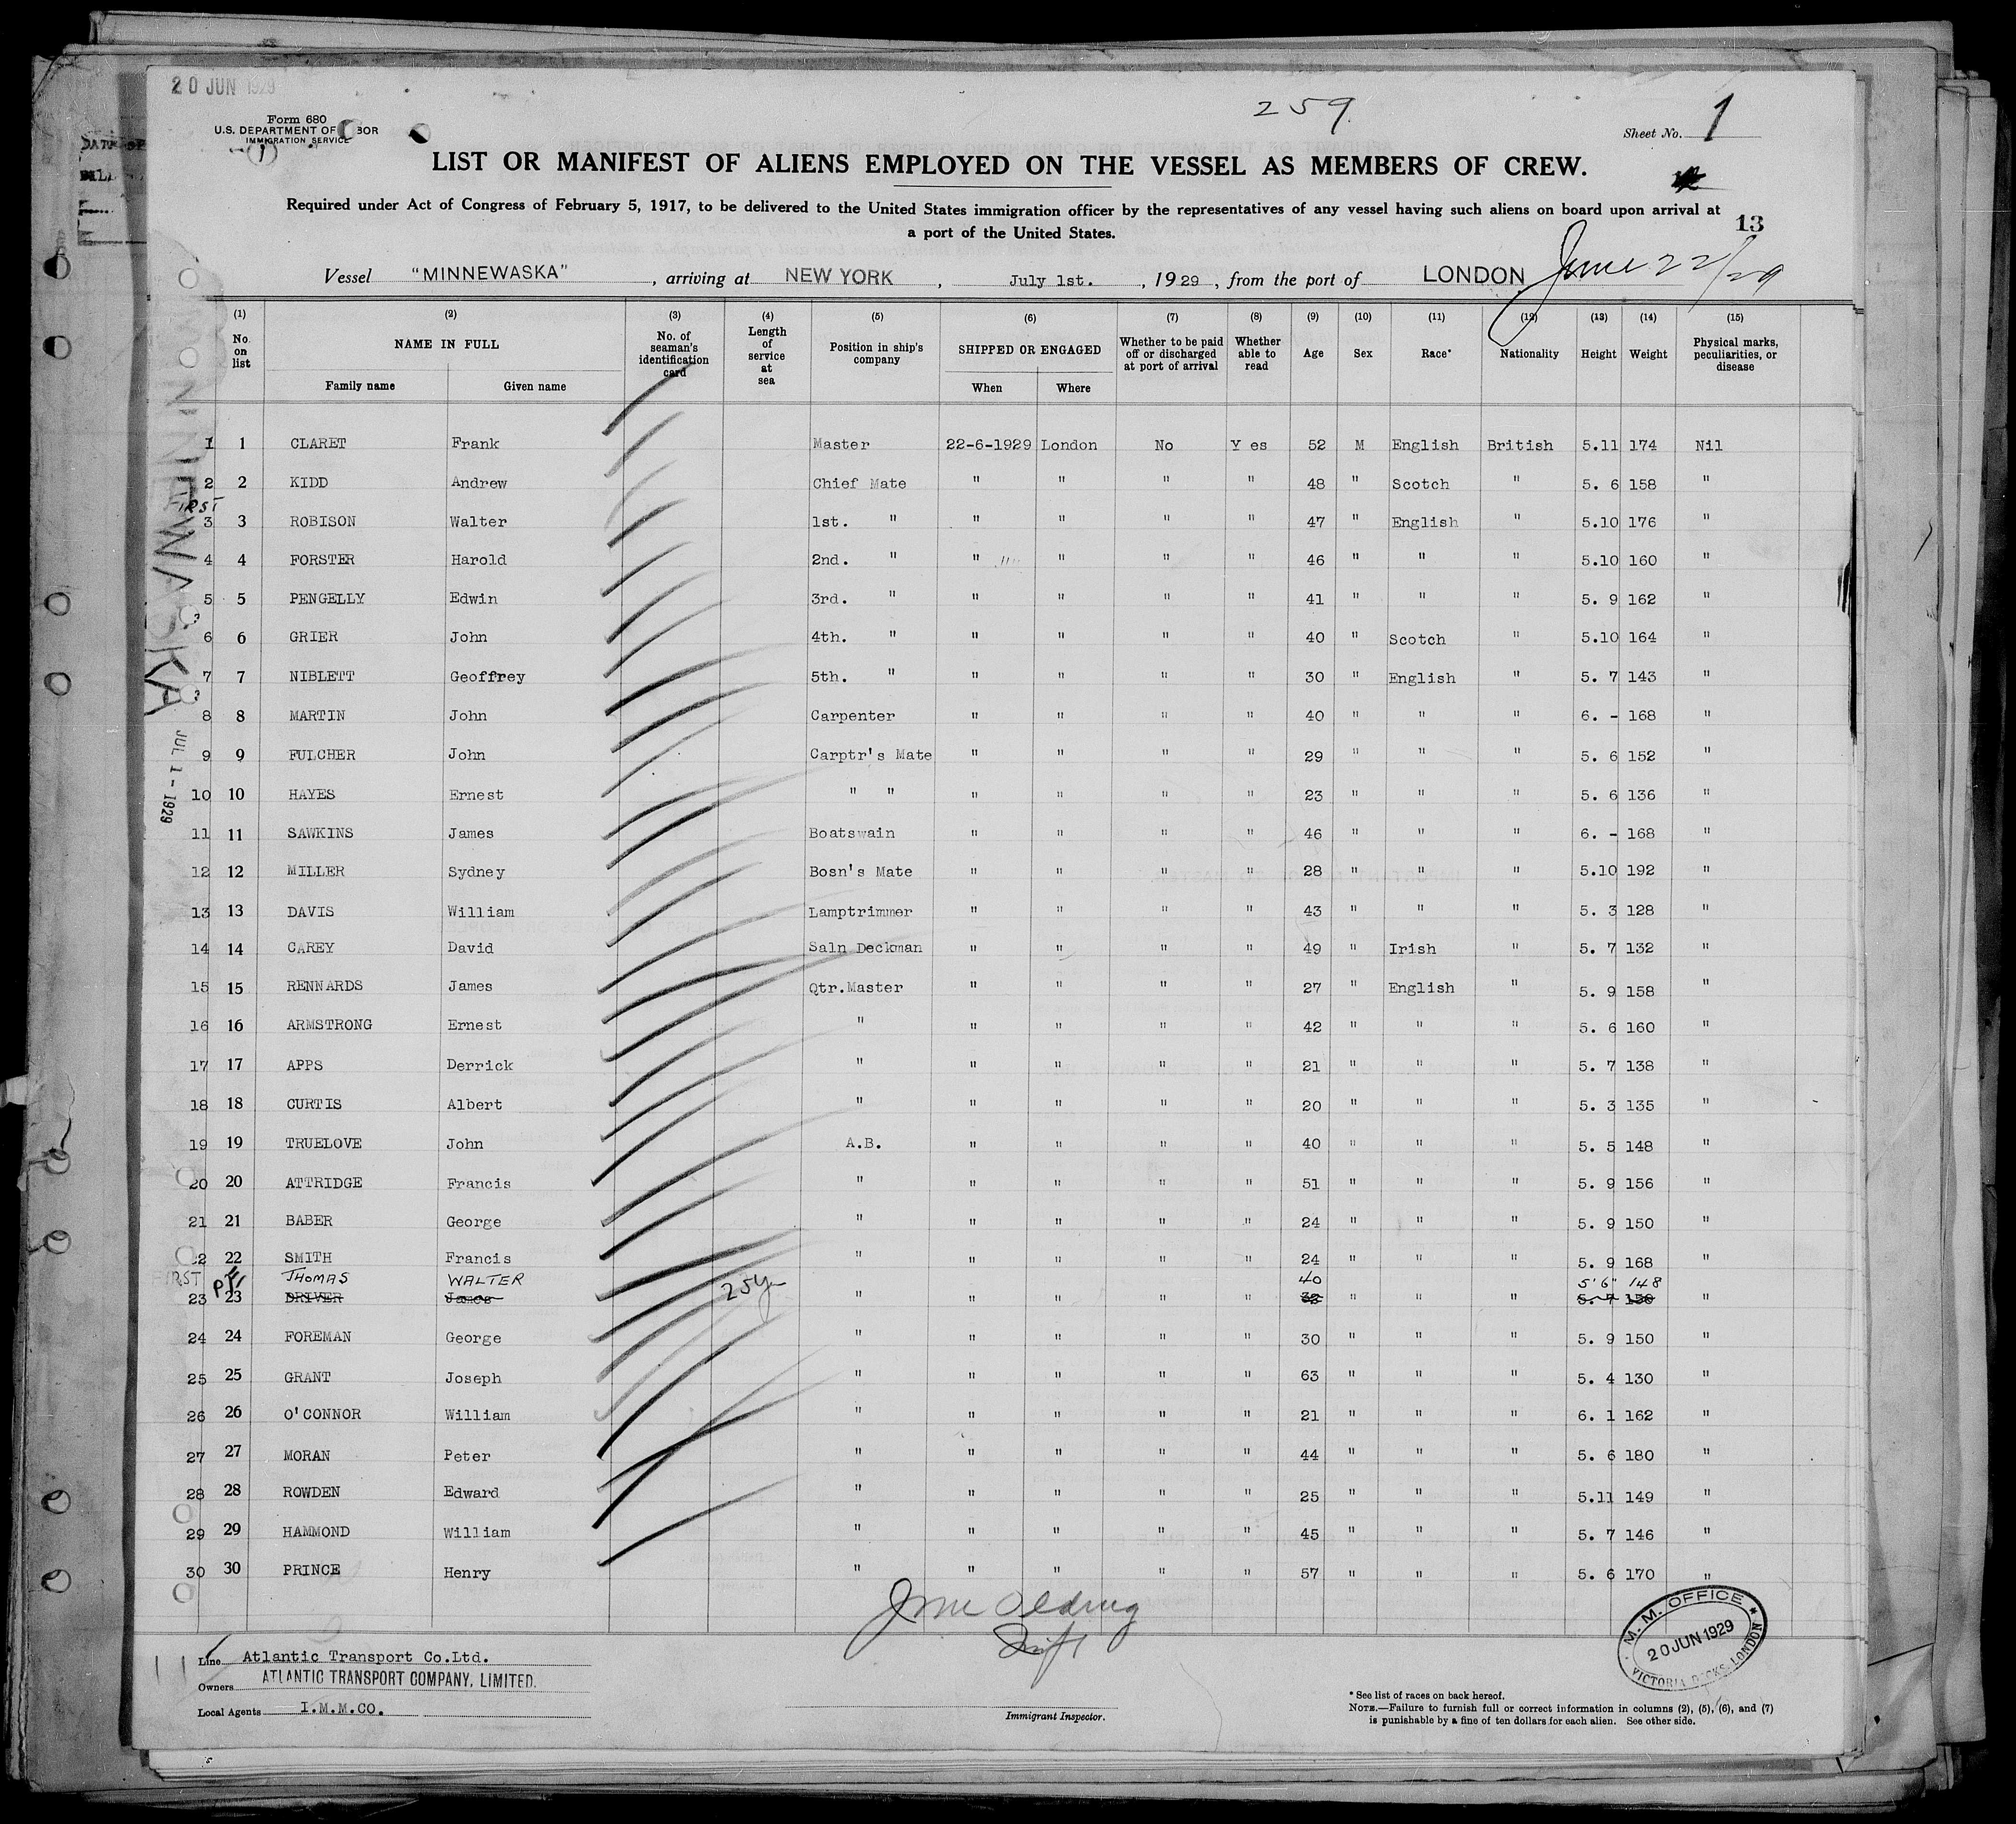 20 JUN 1929
259
Form 680
U.S. DEPARTMENT OF LABOR
IMMIGRATION SERVICE
(1)
Sheet No. 1
LIST OR MANIFEST OF ALIENS EMPLOYED ON THE VESSEL AS MEMBERS OF CREW.
Required under Act of Congress of February 5, 1917, to be delivered to the United States immigration officer by the representatives of any vessel having such aliens on board upon arrival at
a port of the United States.
13
Vessel "MINNEWASKA", arriving at NEW YORK, July 1st., 1929, from the port of LONDON June 22/29
(1) (2) (3) (4) (5) (6) (7) (8) (9) (10) (11) (12) (13) (14) (15)
No. on list NAME IN FULL Family name Given name No. of seaman's identification card Length of service at sea Position in ship's company SHIPPED OR ENGAGED When Where Whether to be paid off or discharged at port of arrival Whether able to read Age Sex Race* Nationality Height Weight Physical marks, peculiarities, or disease
1 1 CLARET Frank Master 22-6-1929 London No Yes 52 M English British 5.11 174 Nil
2 2 KIDD Andrew Chief Mate " " " " 48 " Scotch " 5. 6 158 "
FIRST
3 3 ROBISON Walter 1st. " " " " " 47 " English " 5.10 176 "
4 4 FORSTER Harold 2nd. " " " " " 46 " " " 5.10 160 "
5 5 PENGELLY Edwin 3rd. " " " " " 41 " " " 5. 9 162 "
6 6 GRIER John 4th. " " " " " 40 " Scotch " 5.10 164 "
7 7 NIBLETT Geoffrey 5th. " " " " " 30 " English " 5. 7 143 "
8 8 MARTIN John Carpenter " " " " 40 " " " 6. - 168 "
9 9 FULCHER John Carptr's Mate " " " " 29 " " " 5. 6 152 "
10 10 HAYES Ernest " " " " " " 23 " " " 5. 6 136 "
11 11 SAWKINS James Boatswain " " " " 46 " " " 6. - 168 "
12 12 MILLER Sydney Bosn's Mate " " " " 28 " " " 5.10 192 "
13 13 DAVIS William Lamptrimmer " " " " 43 " " " 5. 3 128 "
14 14 CAREY David Saln Deckman " " " " 49 " Irish " 5. 7 132 "
15 15 RENNARDS James Qtr.Master " " " " 27 " English " 5. 9 158 "
16 16 ARMSTRONG Ernest " " " " " 42 " " " 5. 6 160 "
17 17 APPS Derrick " " " " " 21 " " " 5. 7 138 "
18 18 CURTIS Albert " " " " " 20 " " " 5. 3 135 "
19 19 TRUELOVE John A.B. " " " " 40 " " " 5. 5 148 "
20 20 ATTRIDGE Francis " " " " " 51 " " " 5. 9 156 "
21 21 BABER George " " " " " 24 " " " 5. 9 150 "
22 22 SMITH Francis " " " " " 24 " " " 5. 9 168 "
FIRST THOMAS WALTER 25y 40 5'6" 148
23 23 DRIVER James " " " " " 32 " " " 5. 7 150 "
24 24 FOREMAN George " " " " " 30 " " " 5. 9 150 "
25 25 GRANT Joseph " " " " " 63 " " " 5. 4 130 "
26 26 O'CONNOR William " " " " " 21 " " " 6. 1 162 "
27 27 MORAN Peter " " " " " 44 " " " 5. 6 180 "
28 28 ROWDEN Edward " " " " " 25 " " " 5.11 149 "
29 29 HAMMOND William " " " " " 45 " " " 5. 7 146 "
30 30 PRINCE Henry " " " " " 57 " " " 5. 6 170 "
MINNEWASKA
JUL 1 - 1929
Line Atlantic Transport Co.Ltd.
Owners ATLANTIC TRANSPORT COMPANY, LIMITED.
Local Agents I.M.M.CO.
Immigrant Inspector.
M. M. OFFICE
20 JUN 1929
VICTORIA DOCKS, LONDON
* See list of races on back hereof.
NOTE.—Failure to furnish full or correct information in columns (2), (5), (6), and (7)
is punishable by a fine of ten dollars for each alien. See other side.